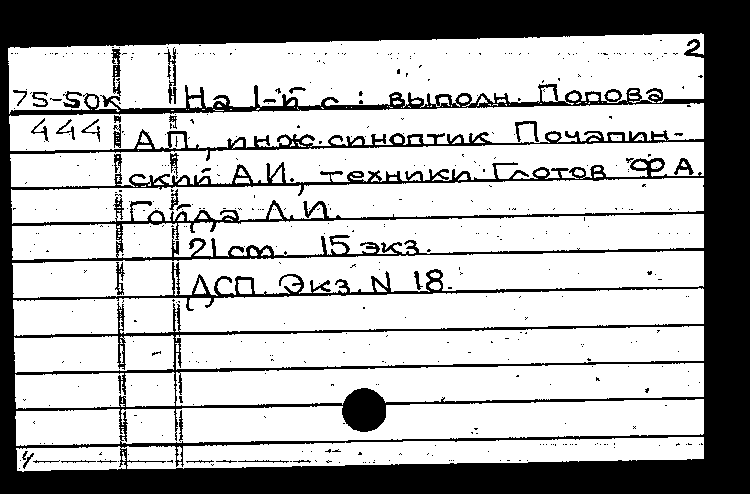 2
75-50к На 1-й с : выполн. Попова
444 А.П., инж.синоптик Почапин-
ский А.И., техники Глотов Ф.А.
Гойда Л.И.
21 ст. 15 экз.
ДСП. Экз. N 18.